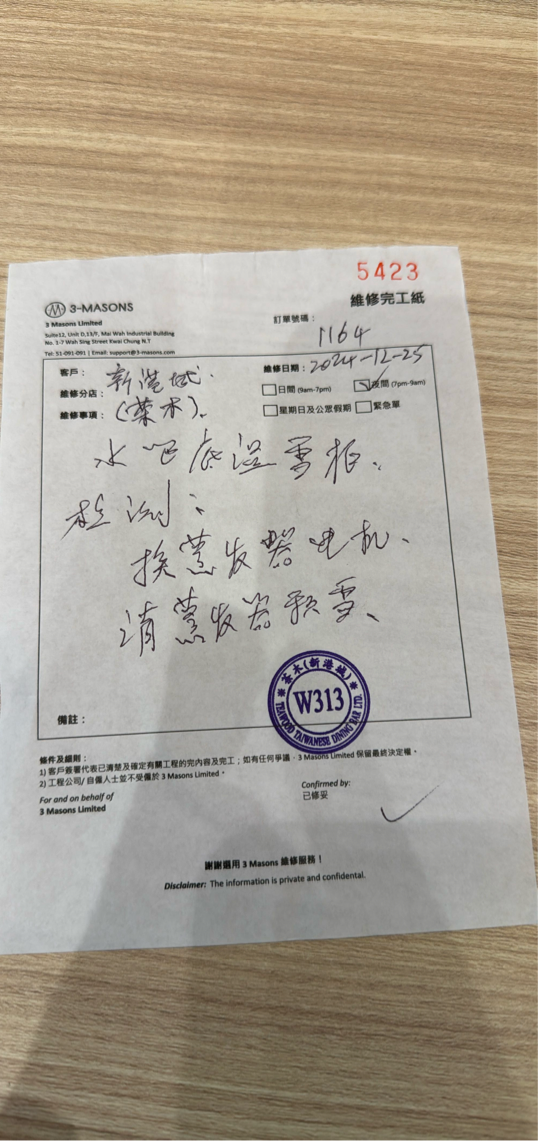 5423
3-MASONS
維修完工紙
3 Masons Limited
Suite12, Unit D,13/F, Mai Wah Industrial Building
No. 1-7 Wah Sing Street Kwai Chung N.T
Tel: 51-091-091 | Email: support@3-masons.com
訂單號碼：
1164
客戶：
新港城.
維修日期：2024-12-25
維修分店：
(茶木).
日間 (9am-7pm)
夜間 (7pm-9am)
維修事項：
星期日及公眾假期
緊急單
水吧底溫雪柜、
检测：
换蒸发器电机、
清蒸发器积雪、
備註：
茶木(新港城)
W313
TEAWOOD TAIWANESE DINING BAR LTD.
條件及細則：
1) 客戶簽署代表已清楚及確定有關工程的完內容及完工；如有任何爭議，3 Masons Limited 保留最終決定權。
2) 工程公司/ 自僱人士並不受僱於 3 Masons Limited。
For and on behalf of
3 Masons Limited
Confirmed by:
已修妥
謝謝選用 3 Masons 維修服務！
Disclaimer: The information is private and confidential.